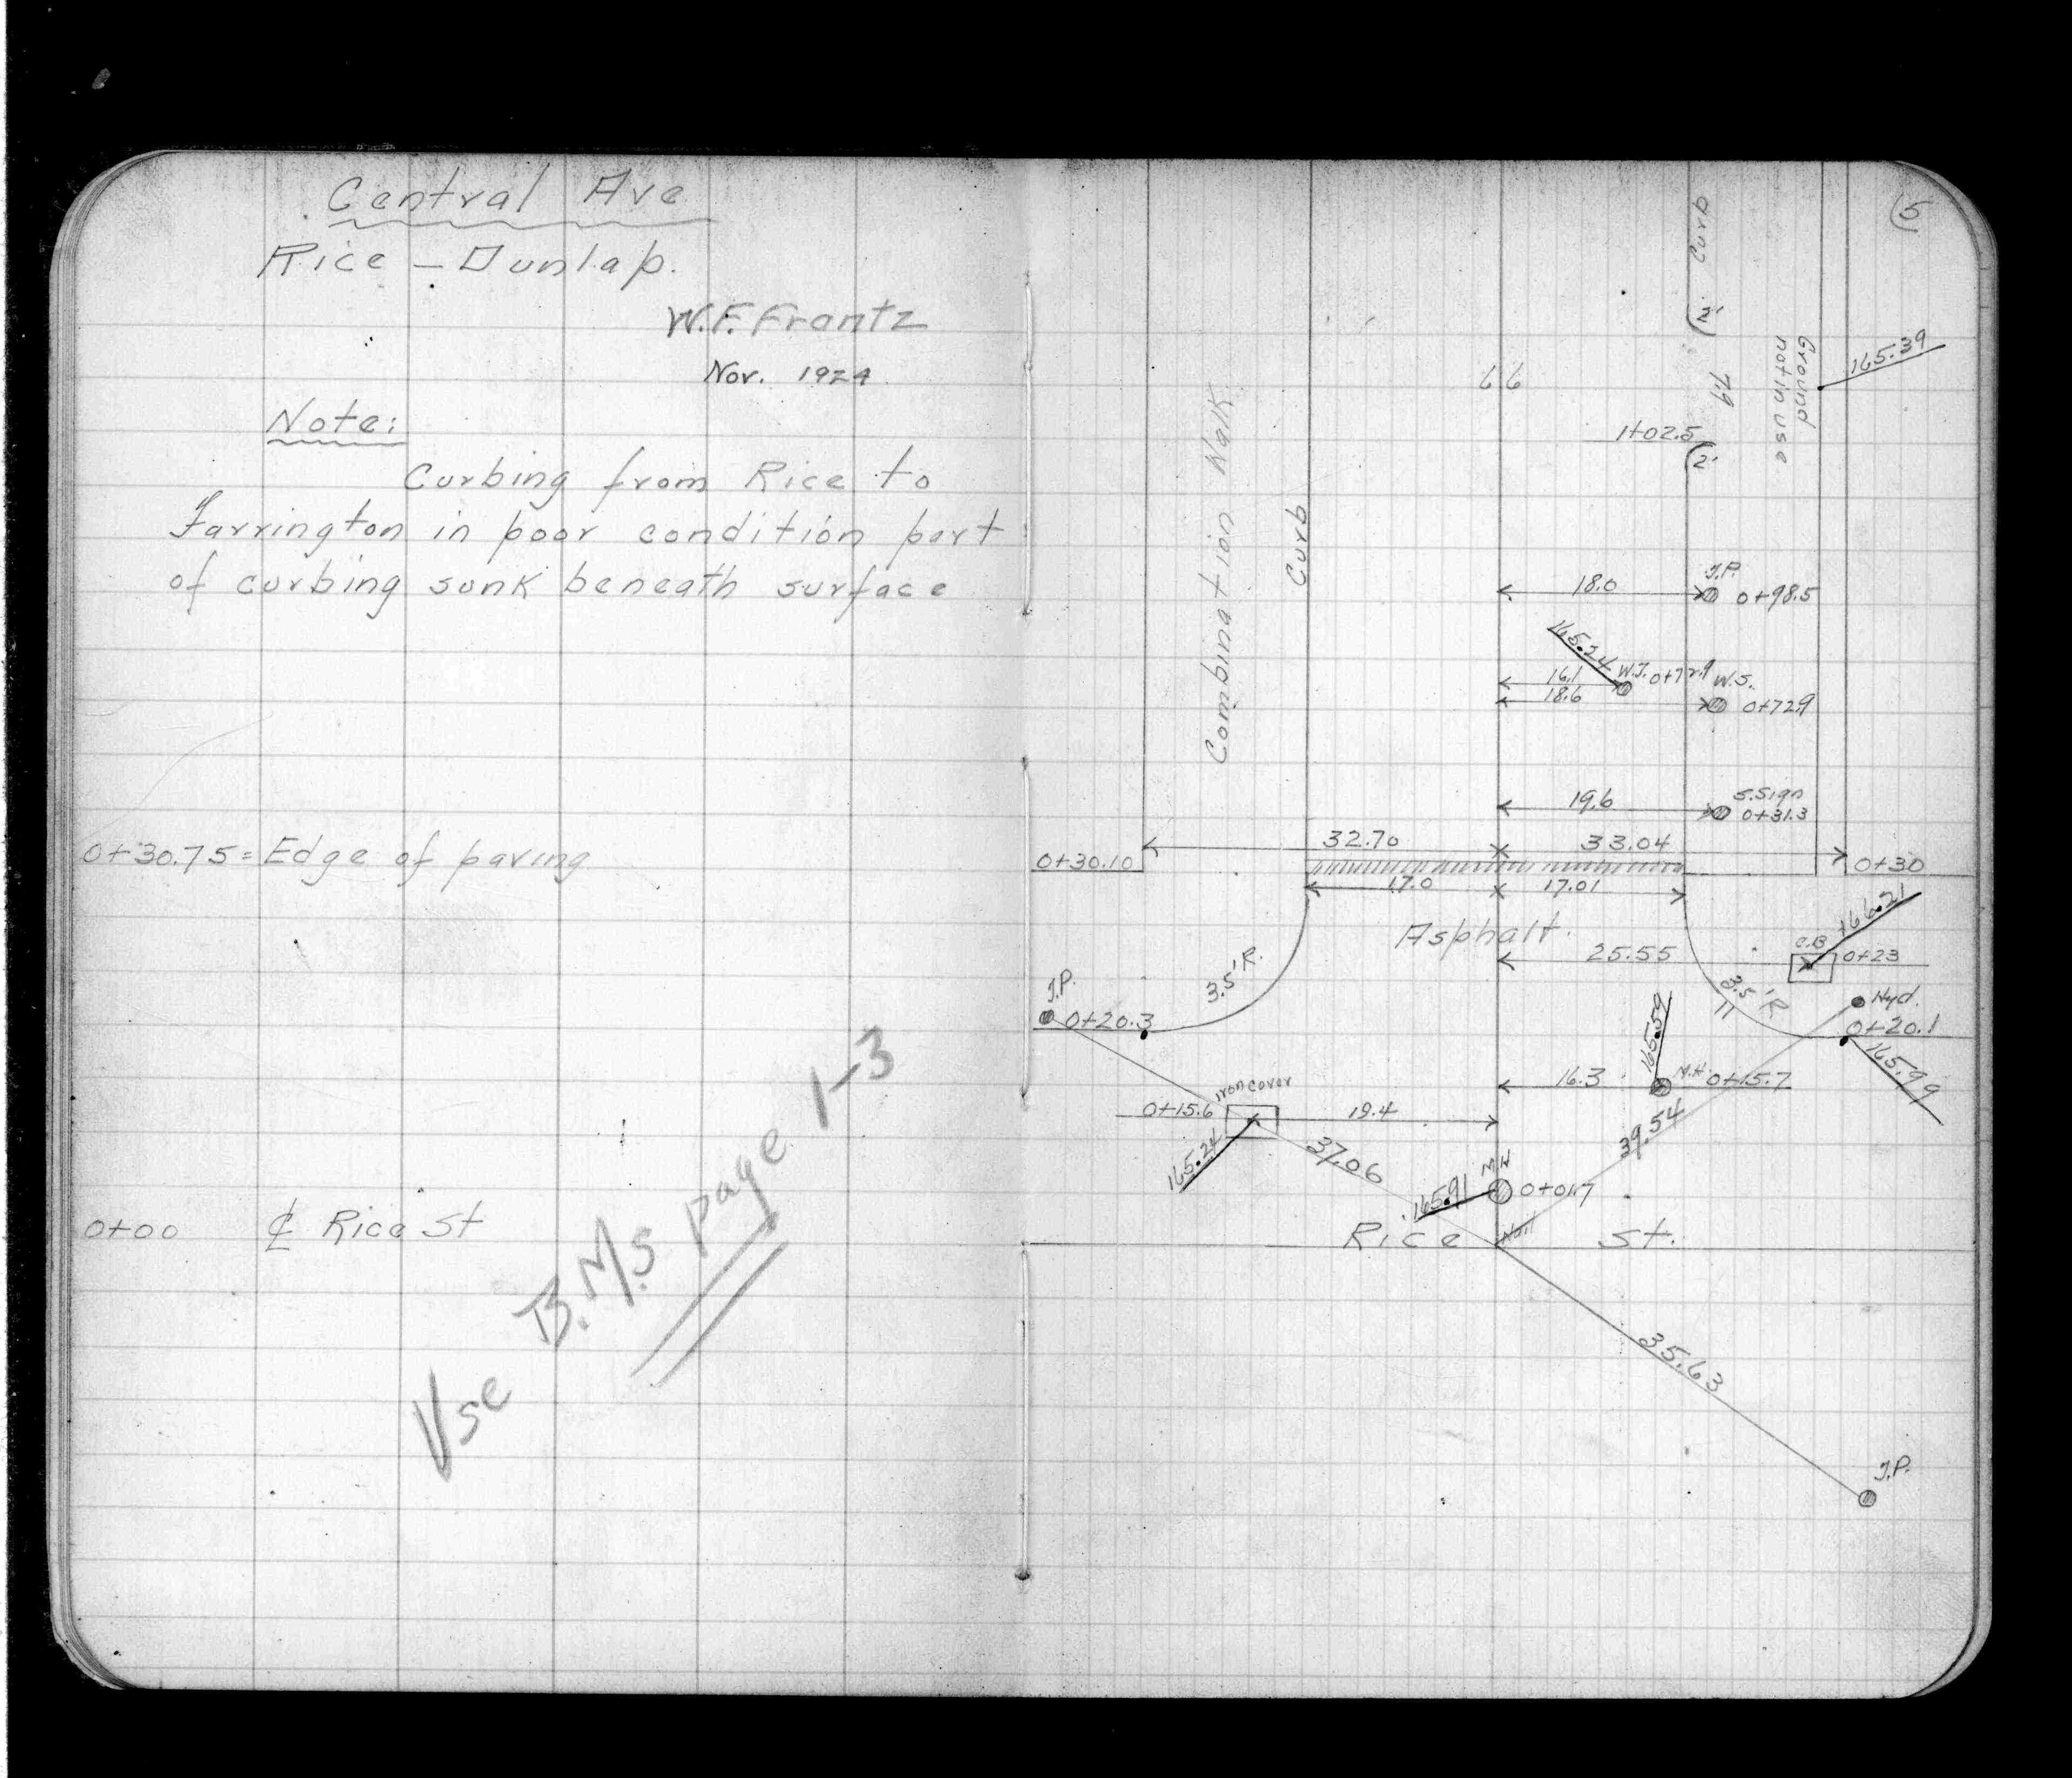 Central Ave
Rice - Dunlap.
W.F. Frantz
Nov. 1924
Note:
Curbing from Rice to
Farrington in poor condition part
of curbing sunk beneath surface
0+30.75 = Edge of paving
0+00 ₵ Rice St
Use B.M.s page 1-3
5
Curb
2'
7.9
Ground
not in use
165.39
66
1+02.5
2'
Combination Walk
Curb
18.0
T.P.
0+98.5
165.24
16.1
W.T. 0+72.9
W.S.
18.6
0+72.9
19.6
S.Sign
0+31.3
32.70
33.04
0+30.10
0+30
17.0
17.01
Asphalt.
166.21
25.55
C.B
0+23
3.5' R.
3.5' R.
T.P.
0+20.3
Hyd.
0+20.1
165.99
165.59
16.3
M.H
0+15.7
iron cover
0+15.6
19.4
165.24
37.06
39.54
M.H
165.91
0+01.7
Rice St.
Nail
35.63
T.P.